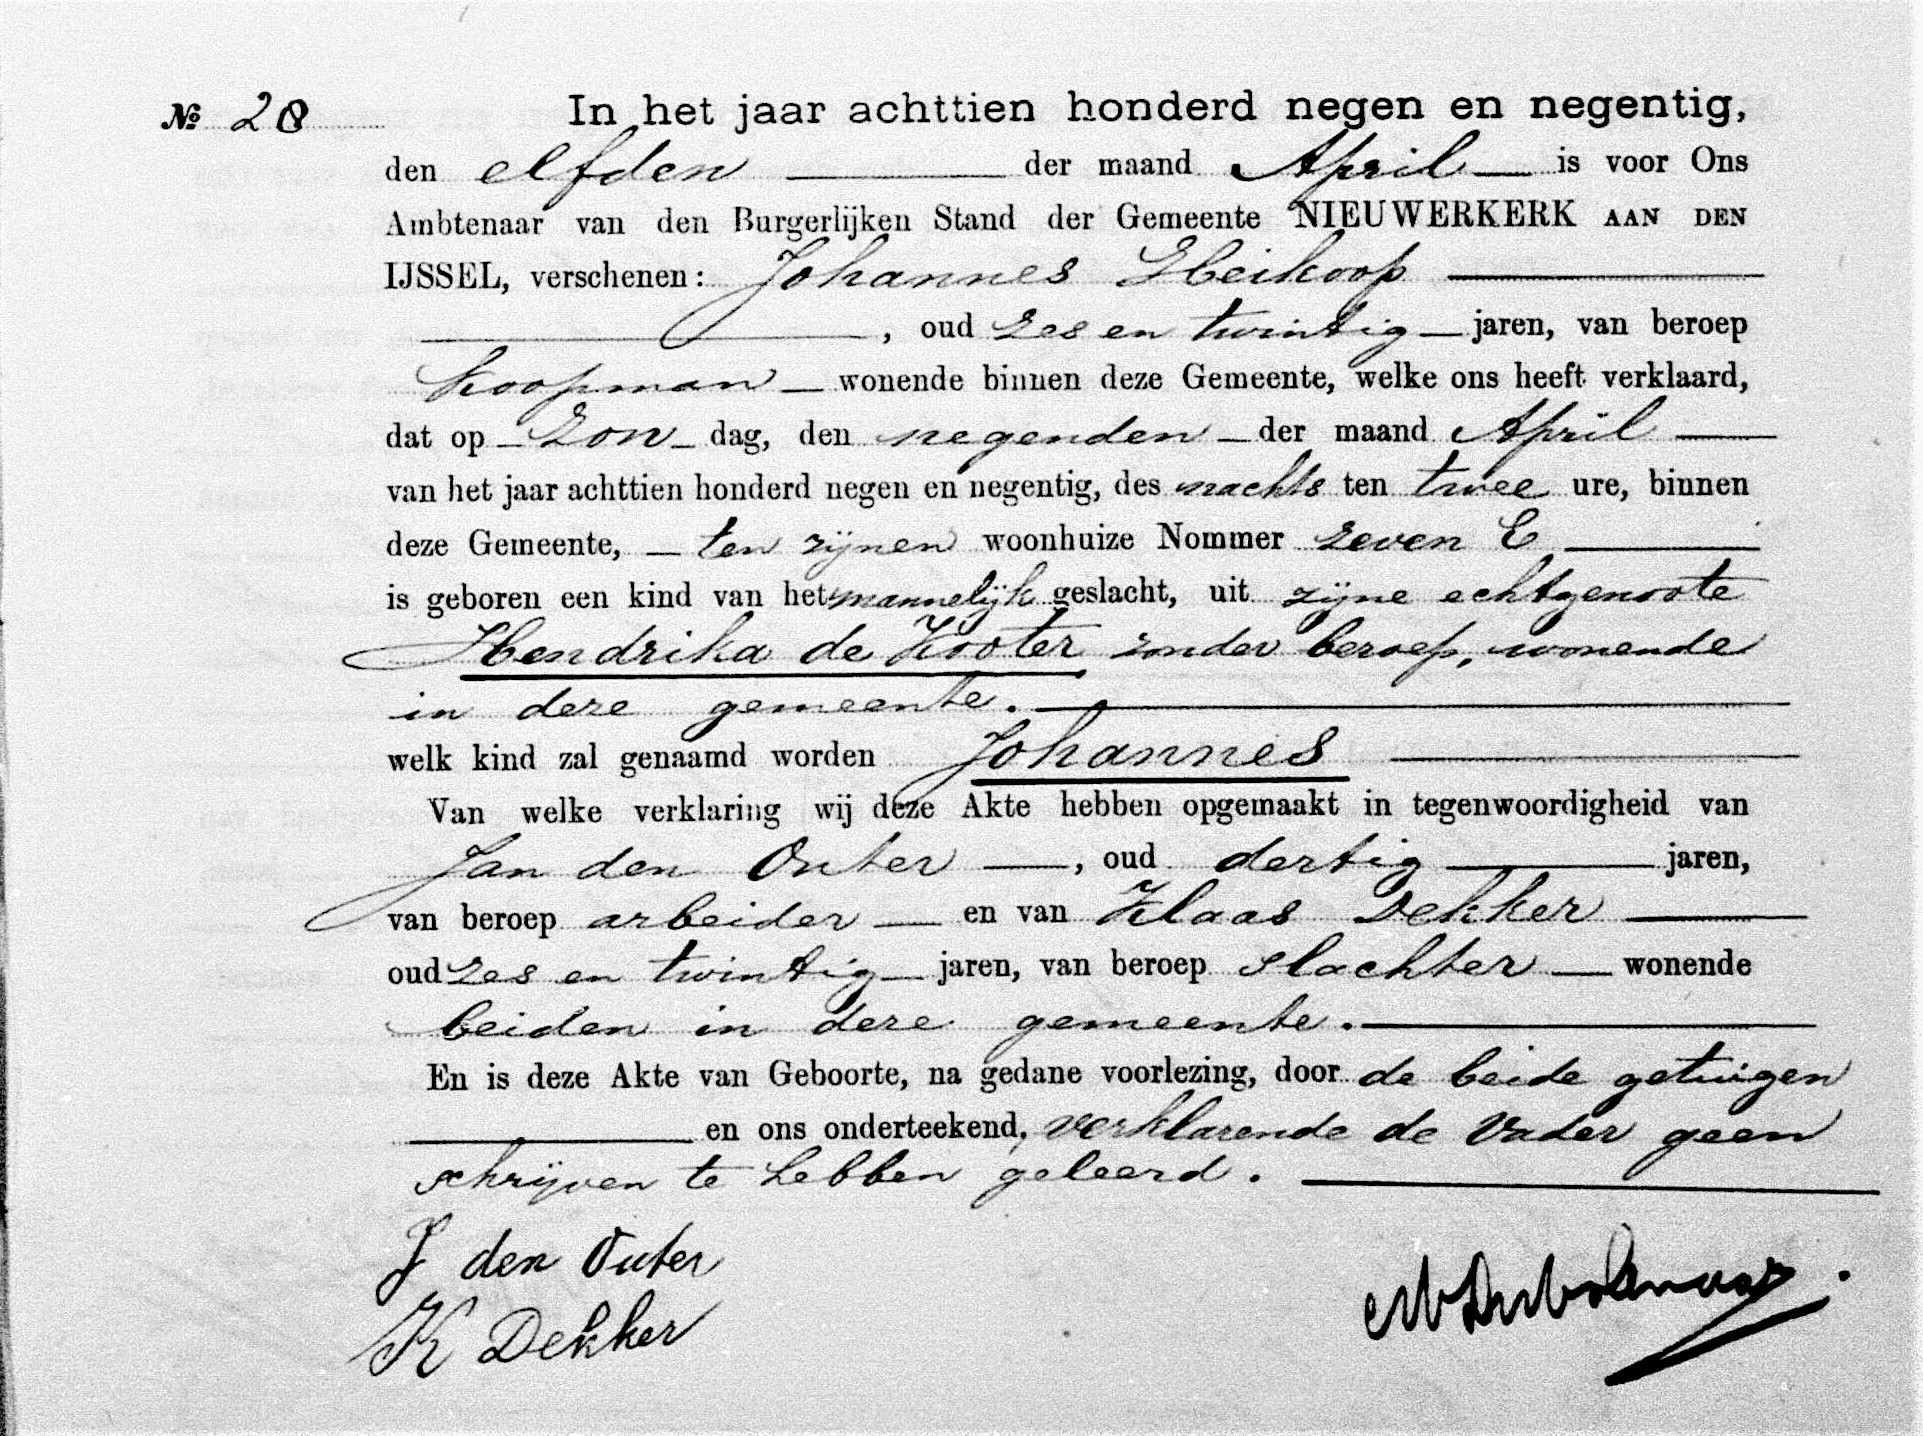 № 28
In het jaar achttien honderd negen en negentig,
den elfden der maand April is voor Ons
Ambtenaar van den Burgerlijken Stand der Gemeente NIEUWERKERK AAN DEN
IJSSEL, verschenen: Johannes Heikoop
, oud zes en twintig jaren, van beroep
koopman wonende binnen deze Gemeente, welke ons heeft verklaard,
dat op Zon dag, den negenden der maand April
van het jaar achttien honderd negen en negentig, des nachts ten twee ure, binnen
deze Gemeente, ten zijnen woonhuize Nommer zeven C
is geboren een kind van het mannelijk geslacht, uit zijne echtgenoote
Hendrika de Kooter zonder beroep, wonende
in deze gemeente.
welk kind zal genaamd worden Johannes
Van welke verklaring wij deze Akte hebben opgemaakt in tegenwoordigheid van
Jan den Outer , oud dertig jaren,
van beroep arbeider en van Klaas Dekker
oud zes en twintig jaren, van beroep slachter wonende
beiden in deze gemeente.
En is deze Akte van Geboorte, na gedane voorlezing, door de beide getuigen
en ons onderteekend, verklarende de Vader geen
schrijven te hebben geleerd.
J den Outer
K Dekker